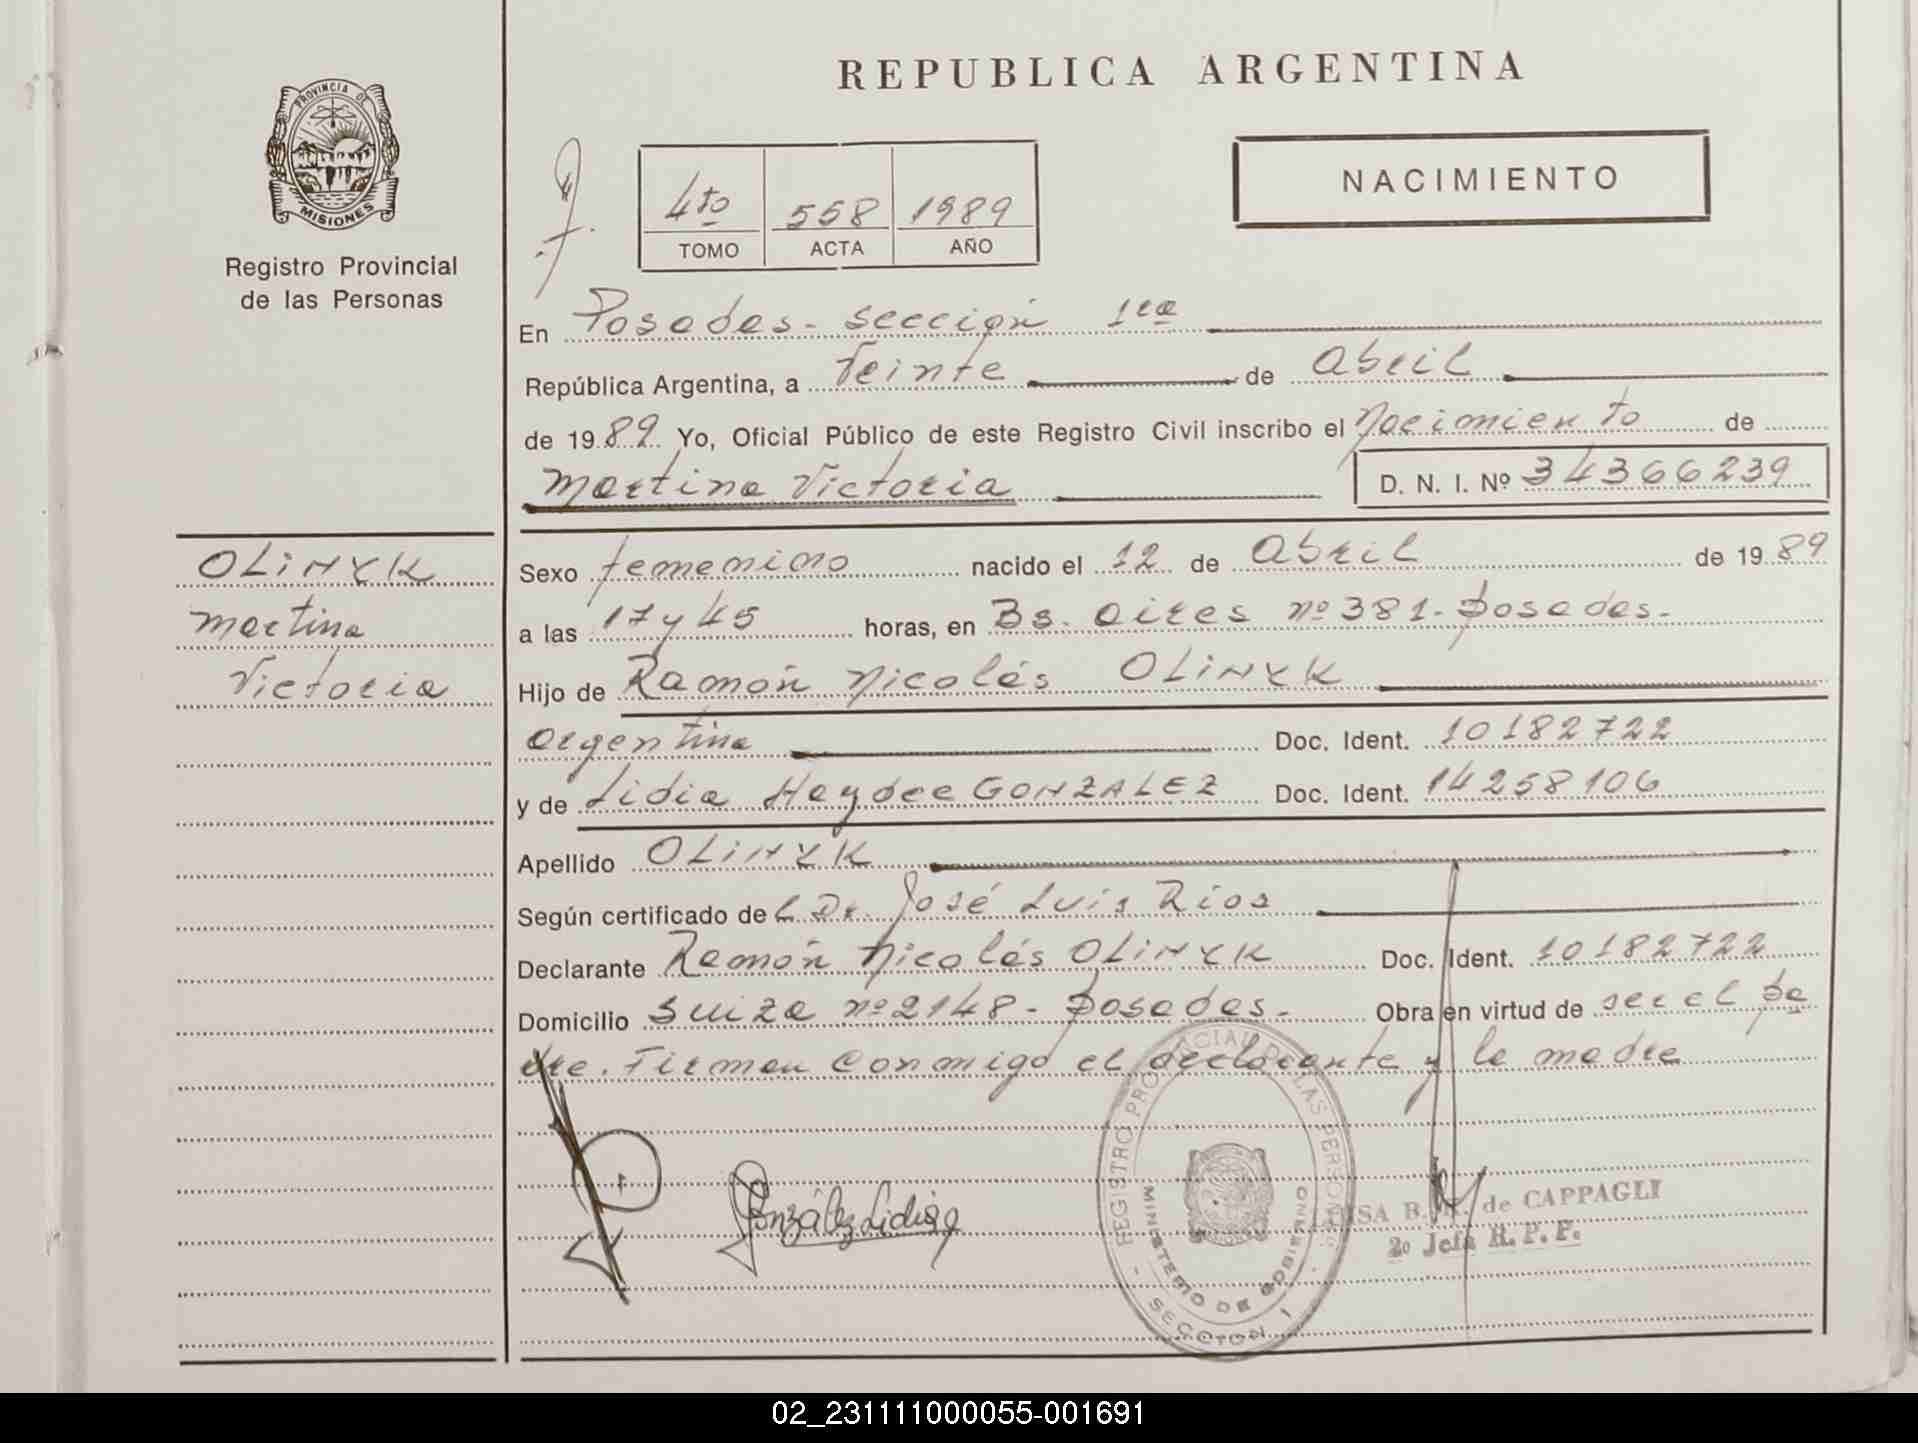 REPUBLICA ARGENTINA
PROVINCIA DE
MISIONES
Registro Provincial
de las Personas
4to 558 1989
TOMO ACTA AÑO
NACIMIENTO
En Posadas - sección 1ra
República Argentina, a Veinte de Abril
de 1989 Yo, Oficial Público de este Registro Civil inscribo el Nacimiento de
Martina Victoria D. N. I. Nº 34366239
OLiNYK
Martina
Victoria
Sexo femenino nacido el 12 de Abril de 1989
a las 17 y 45 horas, en Bs. Aires nº 381 - Posadas -
Hijo de Ramón Nicolás OLiNYK
Argentina Doc. Ident. 10182722
y de Lidia Haydee GONZALEZ Doc. Ident. 14258106
Apellido OLiNYK
Según certificado del Dr. José Luis Rios
Declarante Ramón Nicolás OLiNYK Doc. Ident. 10182722
Domicilio Suiza nº 2148 - Posadas - Obra en virtud de ser el pa
dre. Firman conmigo el declarante y la madre
González Lidia
REGISTRO PROVINCIAL DE LAS PERSONAS
MINISTERIO DE GOBIERNO
- SECCION I -
B. de CAPPAGLI
2º Jefa R. P. F.
02_231111000055-001691